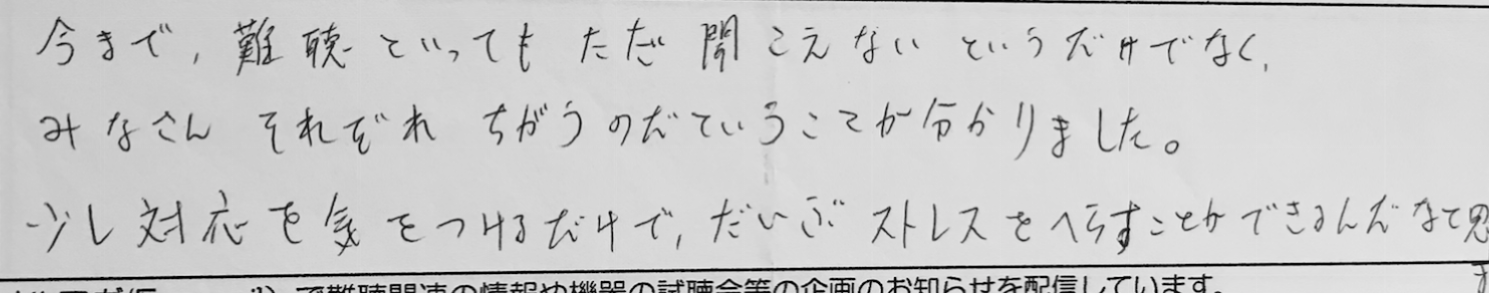 今まで，難聴といってもただ聞こえないというだけでなく，
みなさんそれぞれちがうのだということが分かりました。
少し対応を気をつけるだけで，だいぶストレスをへらすことができるんだなと思
で難聴関連の情報や機器の試聴会等の企画のお知らせを配信しています。